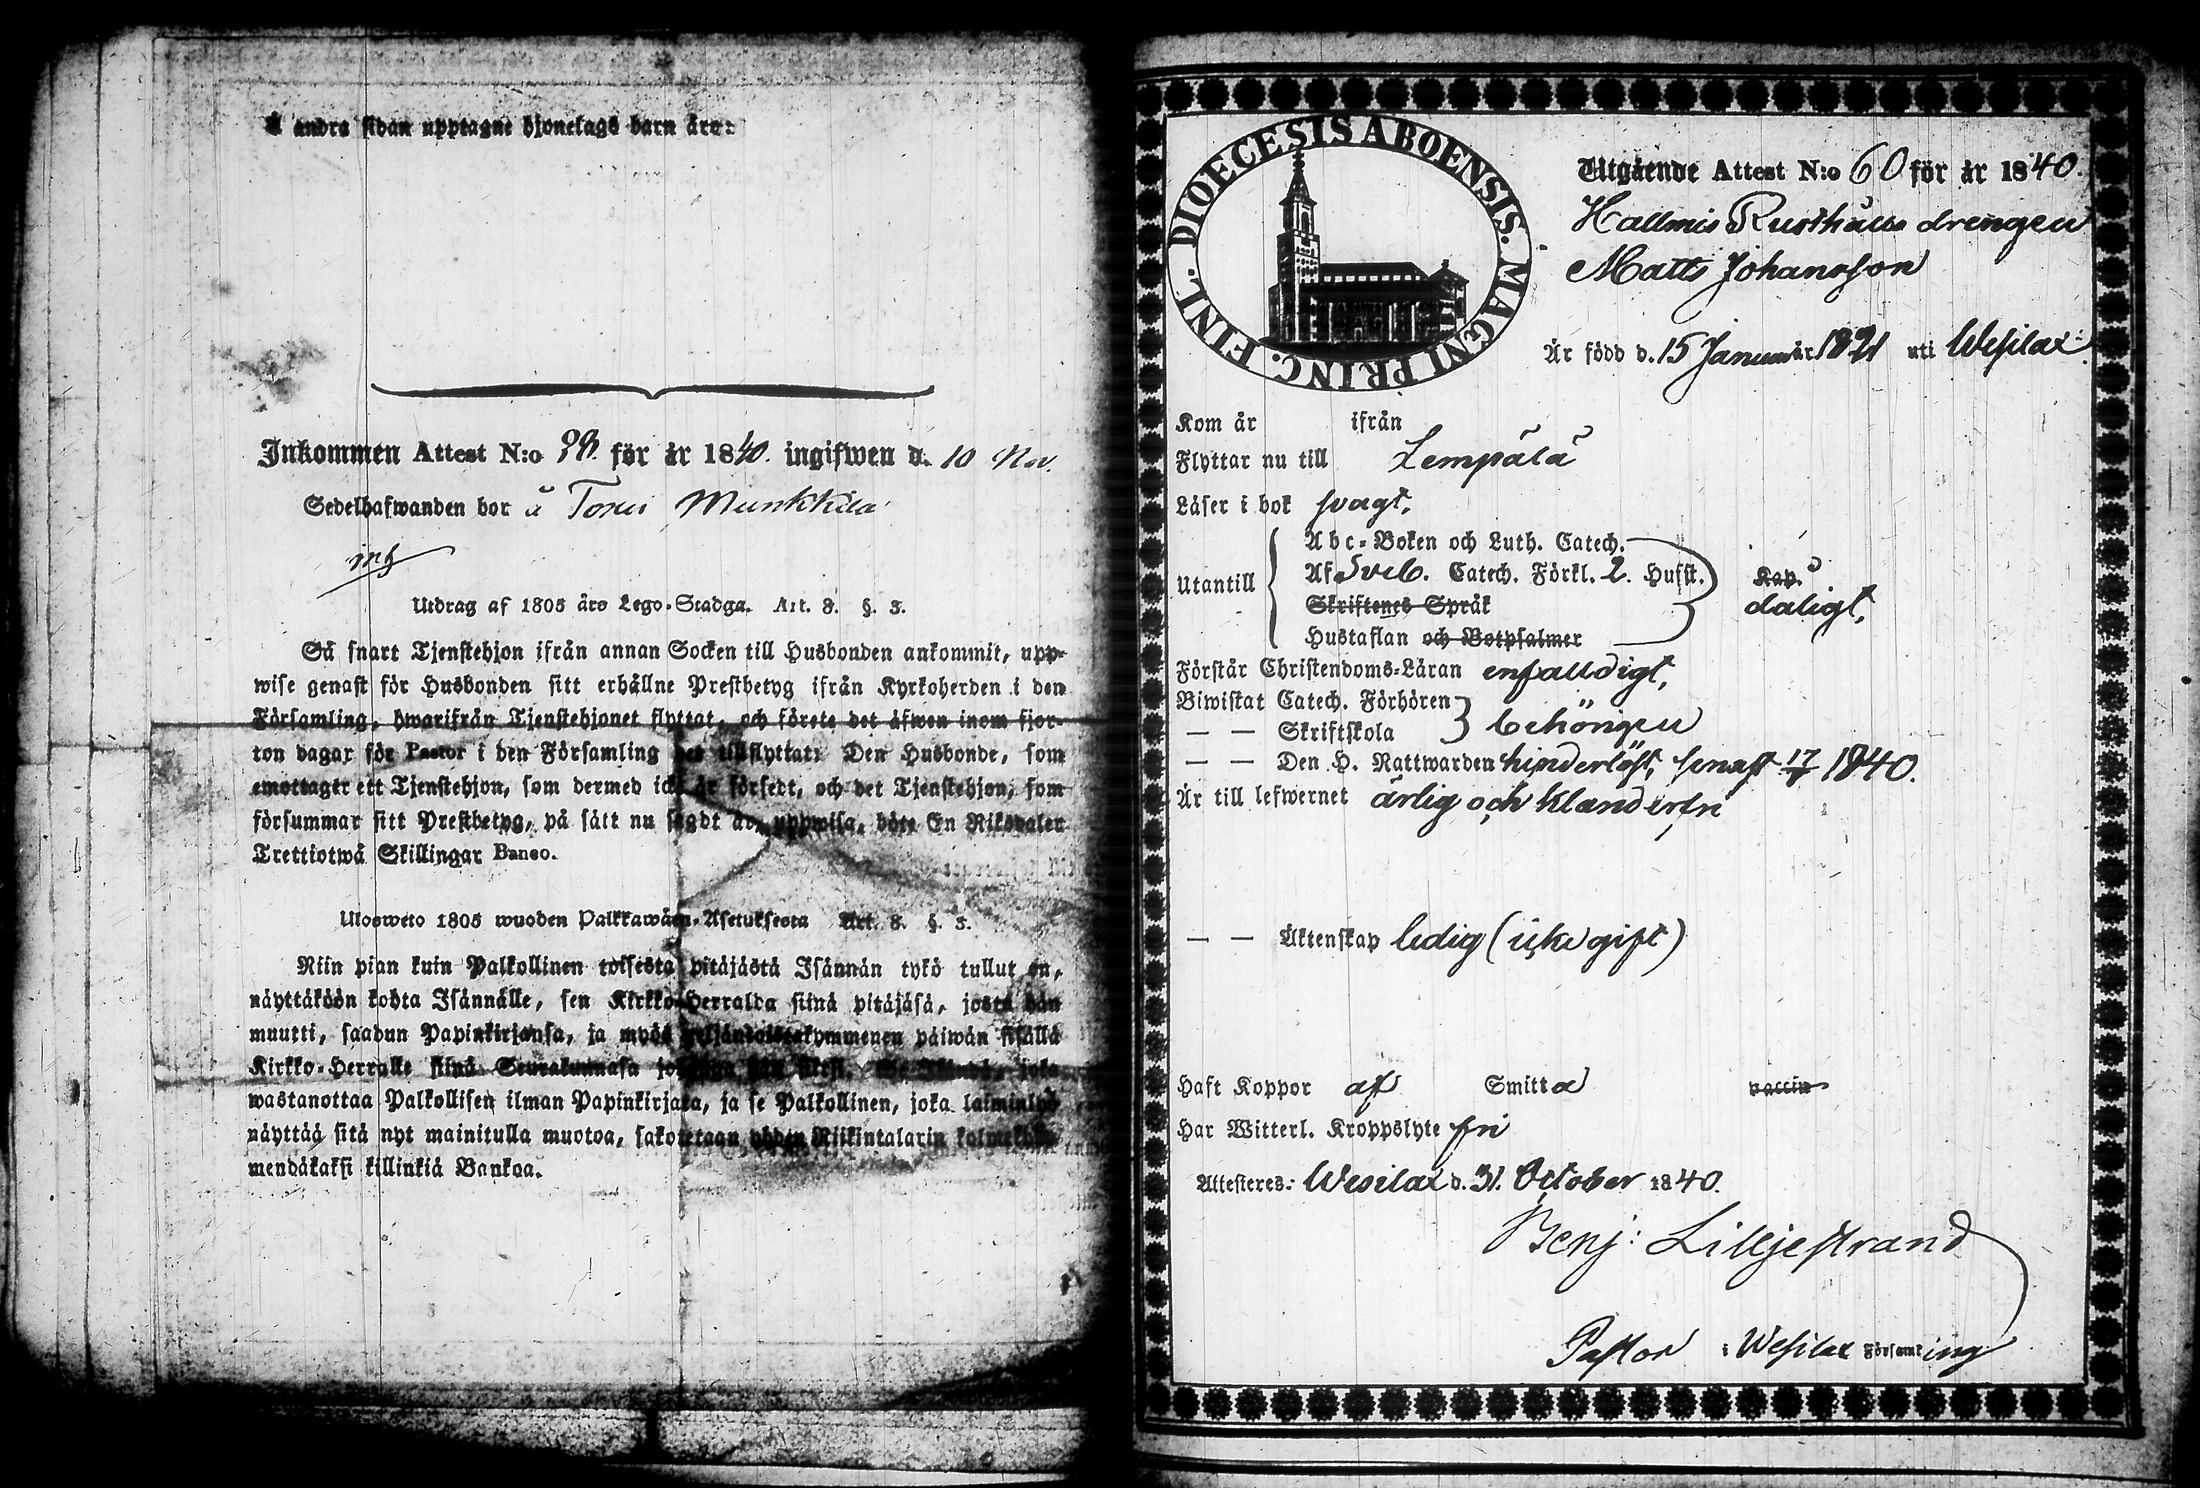 å andra sidan upptagne hjonelags barn äro:
Inkommen Attest N:o 98. för år 1840. ingifwen d. 10 Nov.
Sedelhafwanden bor å Munkkila
Utdrag af 1805 års Lego-Stadga. Art. 8. §. 3.
Så snart Tjenstehjon ifrån annan Socken till Husbonden ankommit, upp-
wise genast för Husbonden sitt erhållne Prestbetyg ifrån Kyrkoherden i den
Församling, hwarifrån Tjenstehjonet flyttat, och förete det äfwen inom fjor-
ton dagar för Pastor i den Församling det tillflyttat: Den Husbonde, som
emottager ett Tjenstehjon, som dermed icke är försedt, och det Tjenstehjon, som
försummar sitt Prestbetyg, på sätt nu sagdt är, uppwisa, böte En Riksdaler
Trettiotwå Skillingar Banco.
Ulosweto 1805 wuoden Palkkawäen-Asetuksesta Art. 8. §. 3.
Niin pian kuin Palkollinen toisesta pitäjästä Isännän tykö tullut on,
näyttäköön kohta Isännälle, sen Kirkko-Herralda siinä pitäjäsä, josta hän
muutti, saadun Papinkirjansa, ja myös neljäntoistakymmenen päiwän sisällä
Kirkko-Herralle siinä Seurakunnasa johonga hän siirsi. Se Isändä, joka
wastanottaa Palkollisen ilman Papinkirjata, ja se Palkollinen, joka laiminlyö
näyttää sitä nyt mainitulla muotoa, sakotetaan yhden Riikintalarin kolmekym-
mendäkaksi killinkiä Bankoa.
DIOECESIS ABOENSIS. MAGNI PRINC. FINL.
Utgående Attest N:o 60 för år 1840.
Hallmis Rusthålls drengen
Matts Johansson
Är född d. 15 Januarii 1821 uti Wesilax.
Kom år ifrån
Flyttar nu till Lempälä
Läser i bok svagt,
Utantill
Abc-Boken och Luth. Catech.
Af Sveb. Catech. Förkl. 2. Hufst. Kap.
Skriftenes Språk daligt,
Hustaflan och Botpsalmer
Förstår Christendoms-Läran enfalldigt,
Biwistat Catech. Förhören
— — Skriftskola behörigen
— — Den H. Nattwarden hinderlöst, senast 17/ 1840.
Är till lefwernet ärlig och klanderfri
— — Äktenskap ledig (icke gift)
Haft Koppor af Smitta vaccin
Har Witterl. Kroppslyte fri
Attesteres: Wesilax d. 31. October 1840.
Benj: Lilljestrand
Pastor i Wesilax Församling